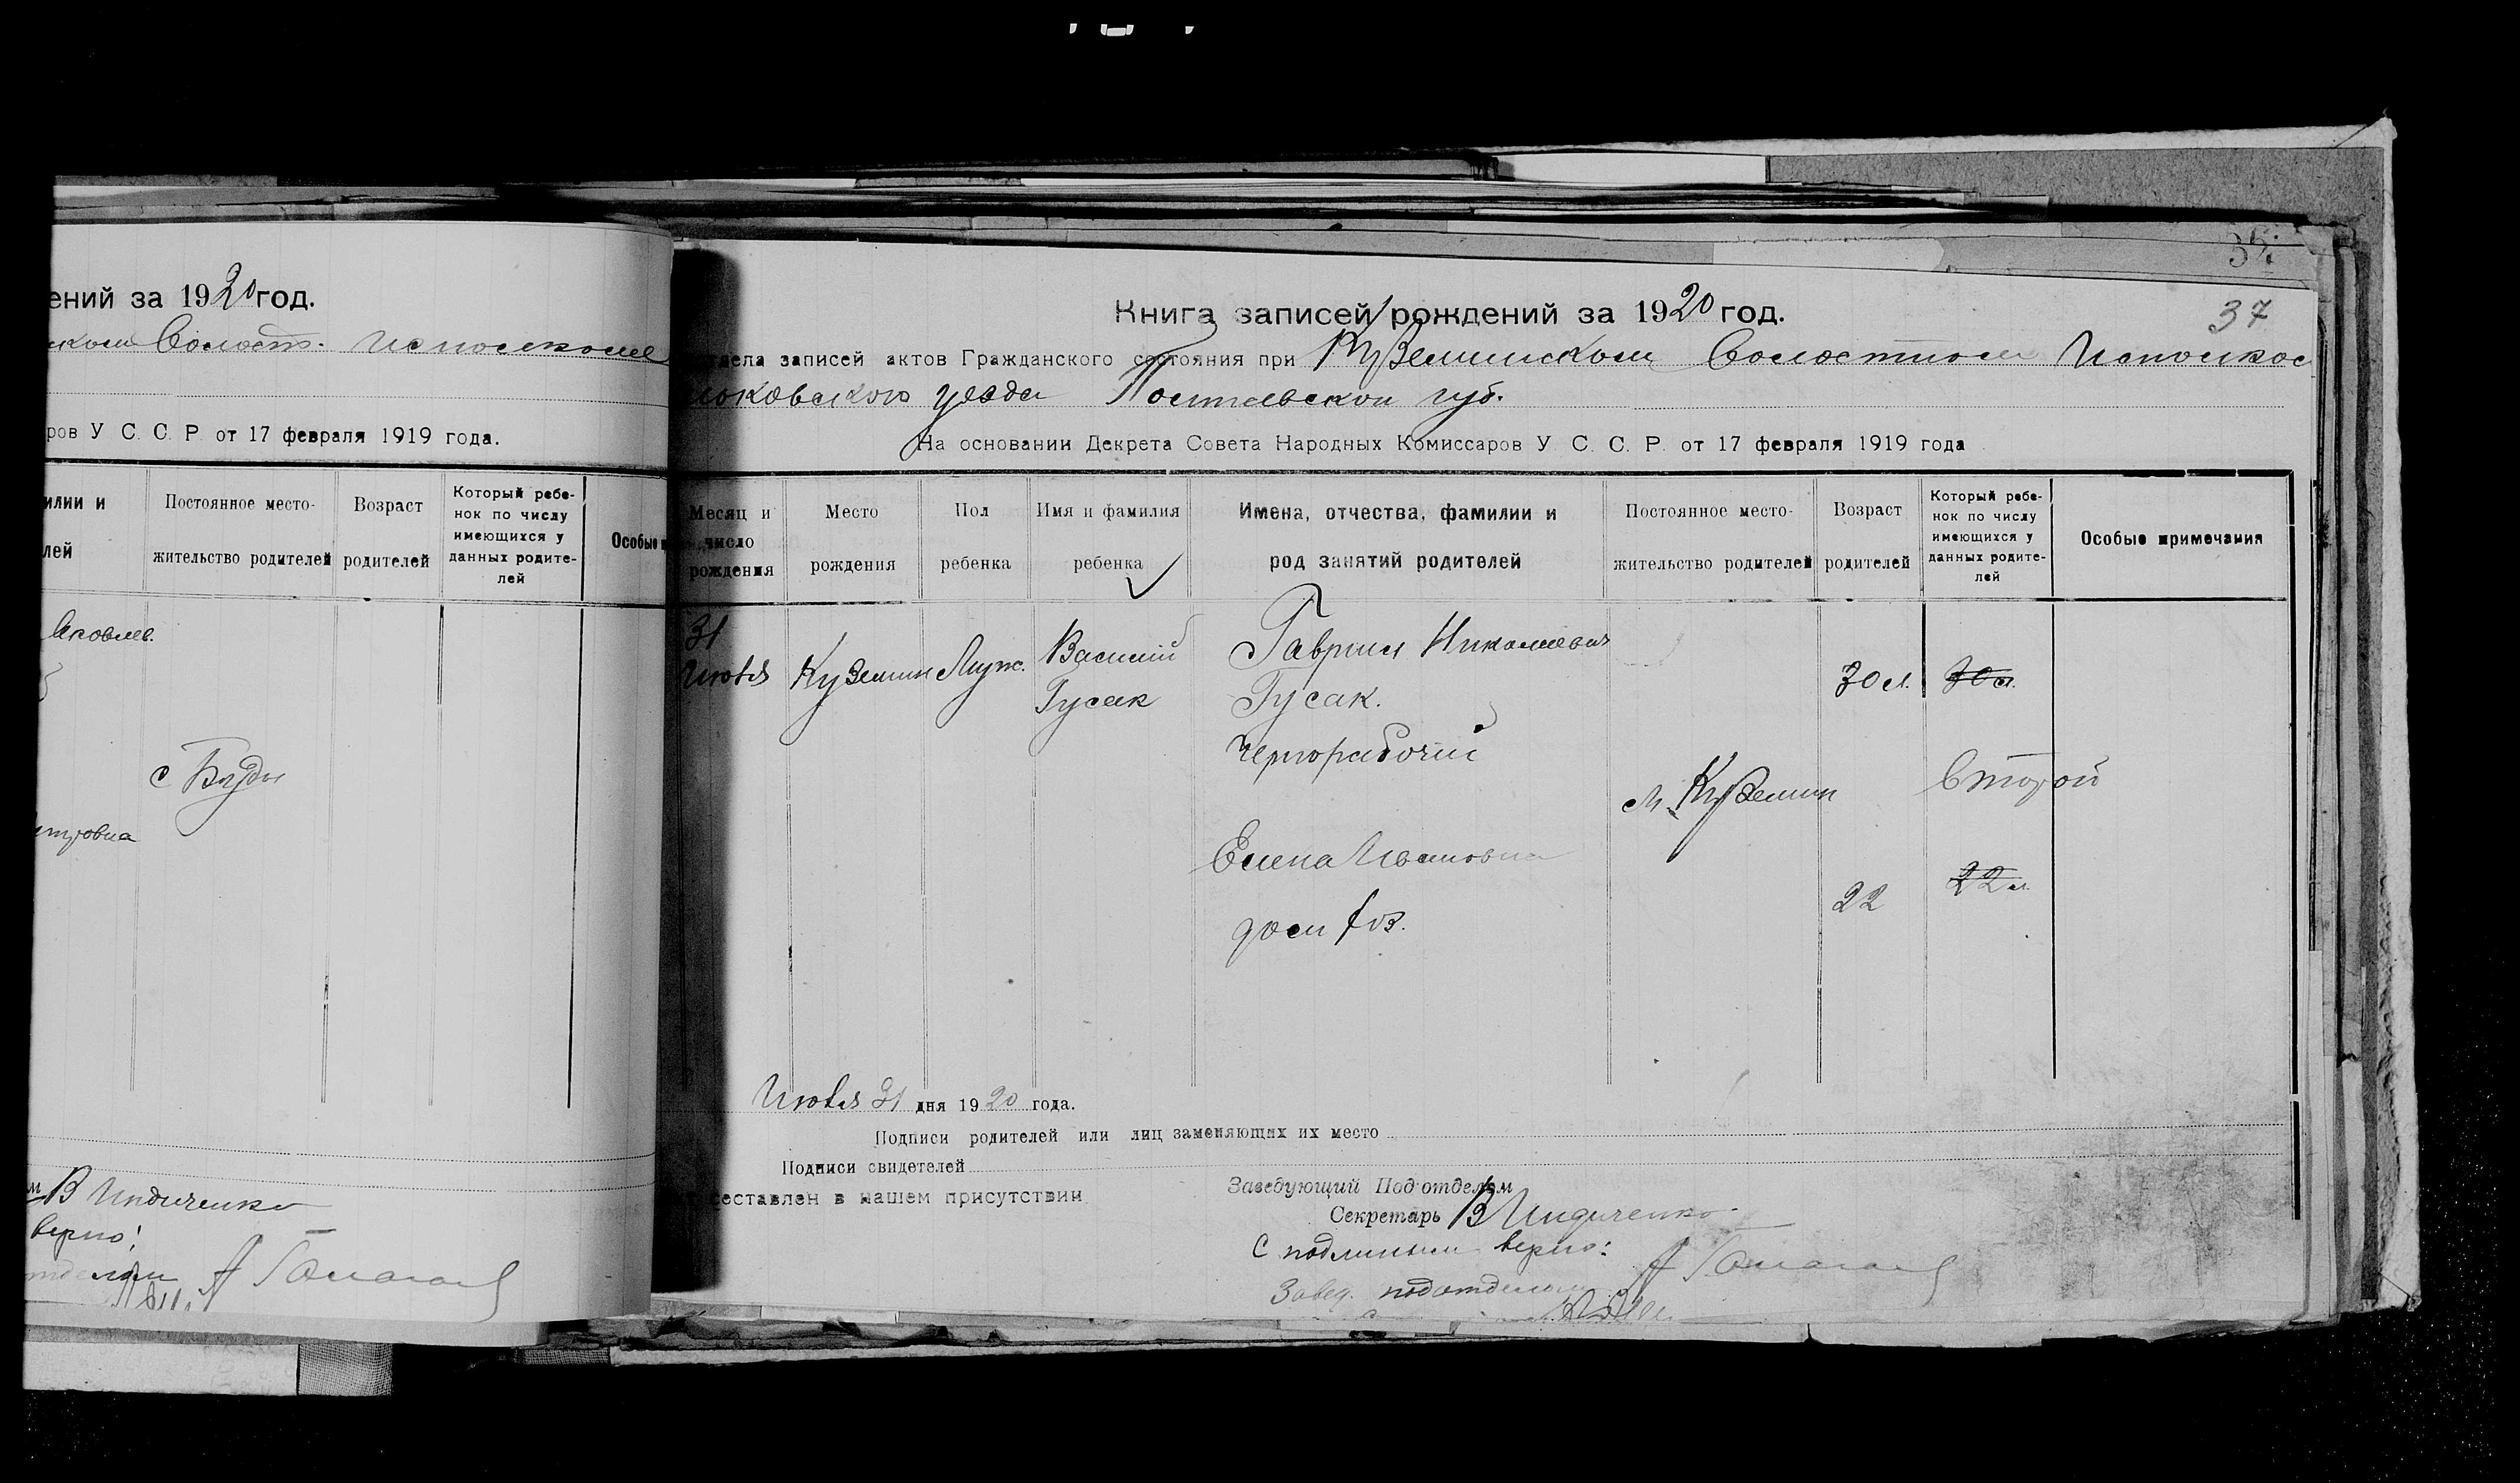 ений за 1920 год.
ском Волост. Исполкоме
ров У С. С. Р. от 17 февраля 1919 года.
илии и
лей
Постоянное место-
жительство родителей
Возраст
родителей
Который ребе-
нок по числу
имеющихся у
данных родите-
лей
Особые
Яковлев.
с Буды
етровна
В Индиченко
верно!
35
37
Книга записей рождений за 1920 год.
дела записей актов Гражданского состояния при Куземинском Волостном Исполком
ковского уезда Полтавской губ.
На основании Декрета Совета Народных Комиссаров У. С. С. Р. от 17 февраля 1919 года
Месяц и
число
рождения
Место
рождения
Пол
ребенка
Имя и фамилия
ребенка
Имена, отчества, фамилии и
род занятий родителей
Постоянное место-
жительство родителей
Возраст
родителей
Который ребе-
нок по числу
имеющихся у
данных родите-
лей
Особые примечания
31
Июля
Куземин
Муж.
Василий
Гусак
Гавриил Николаевич
Гусак.
Чернорабочий
Елена Ивановна
дом хоз.
м. Куземин
30 л.
22
30 л.
второй
22 л.
Июля 31 дня 1920 года.
Подписи родителей или лиц заменяющих их место
Подписи свидетелей
составлен в нашем присутствии
Заведующий Подотделом
Секретарь В Индиченко
С подлинным верно:
Завед. подотделом